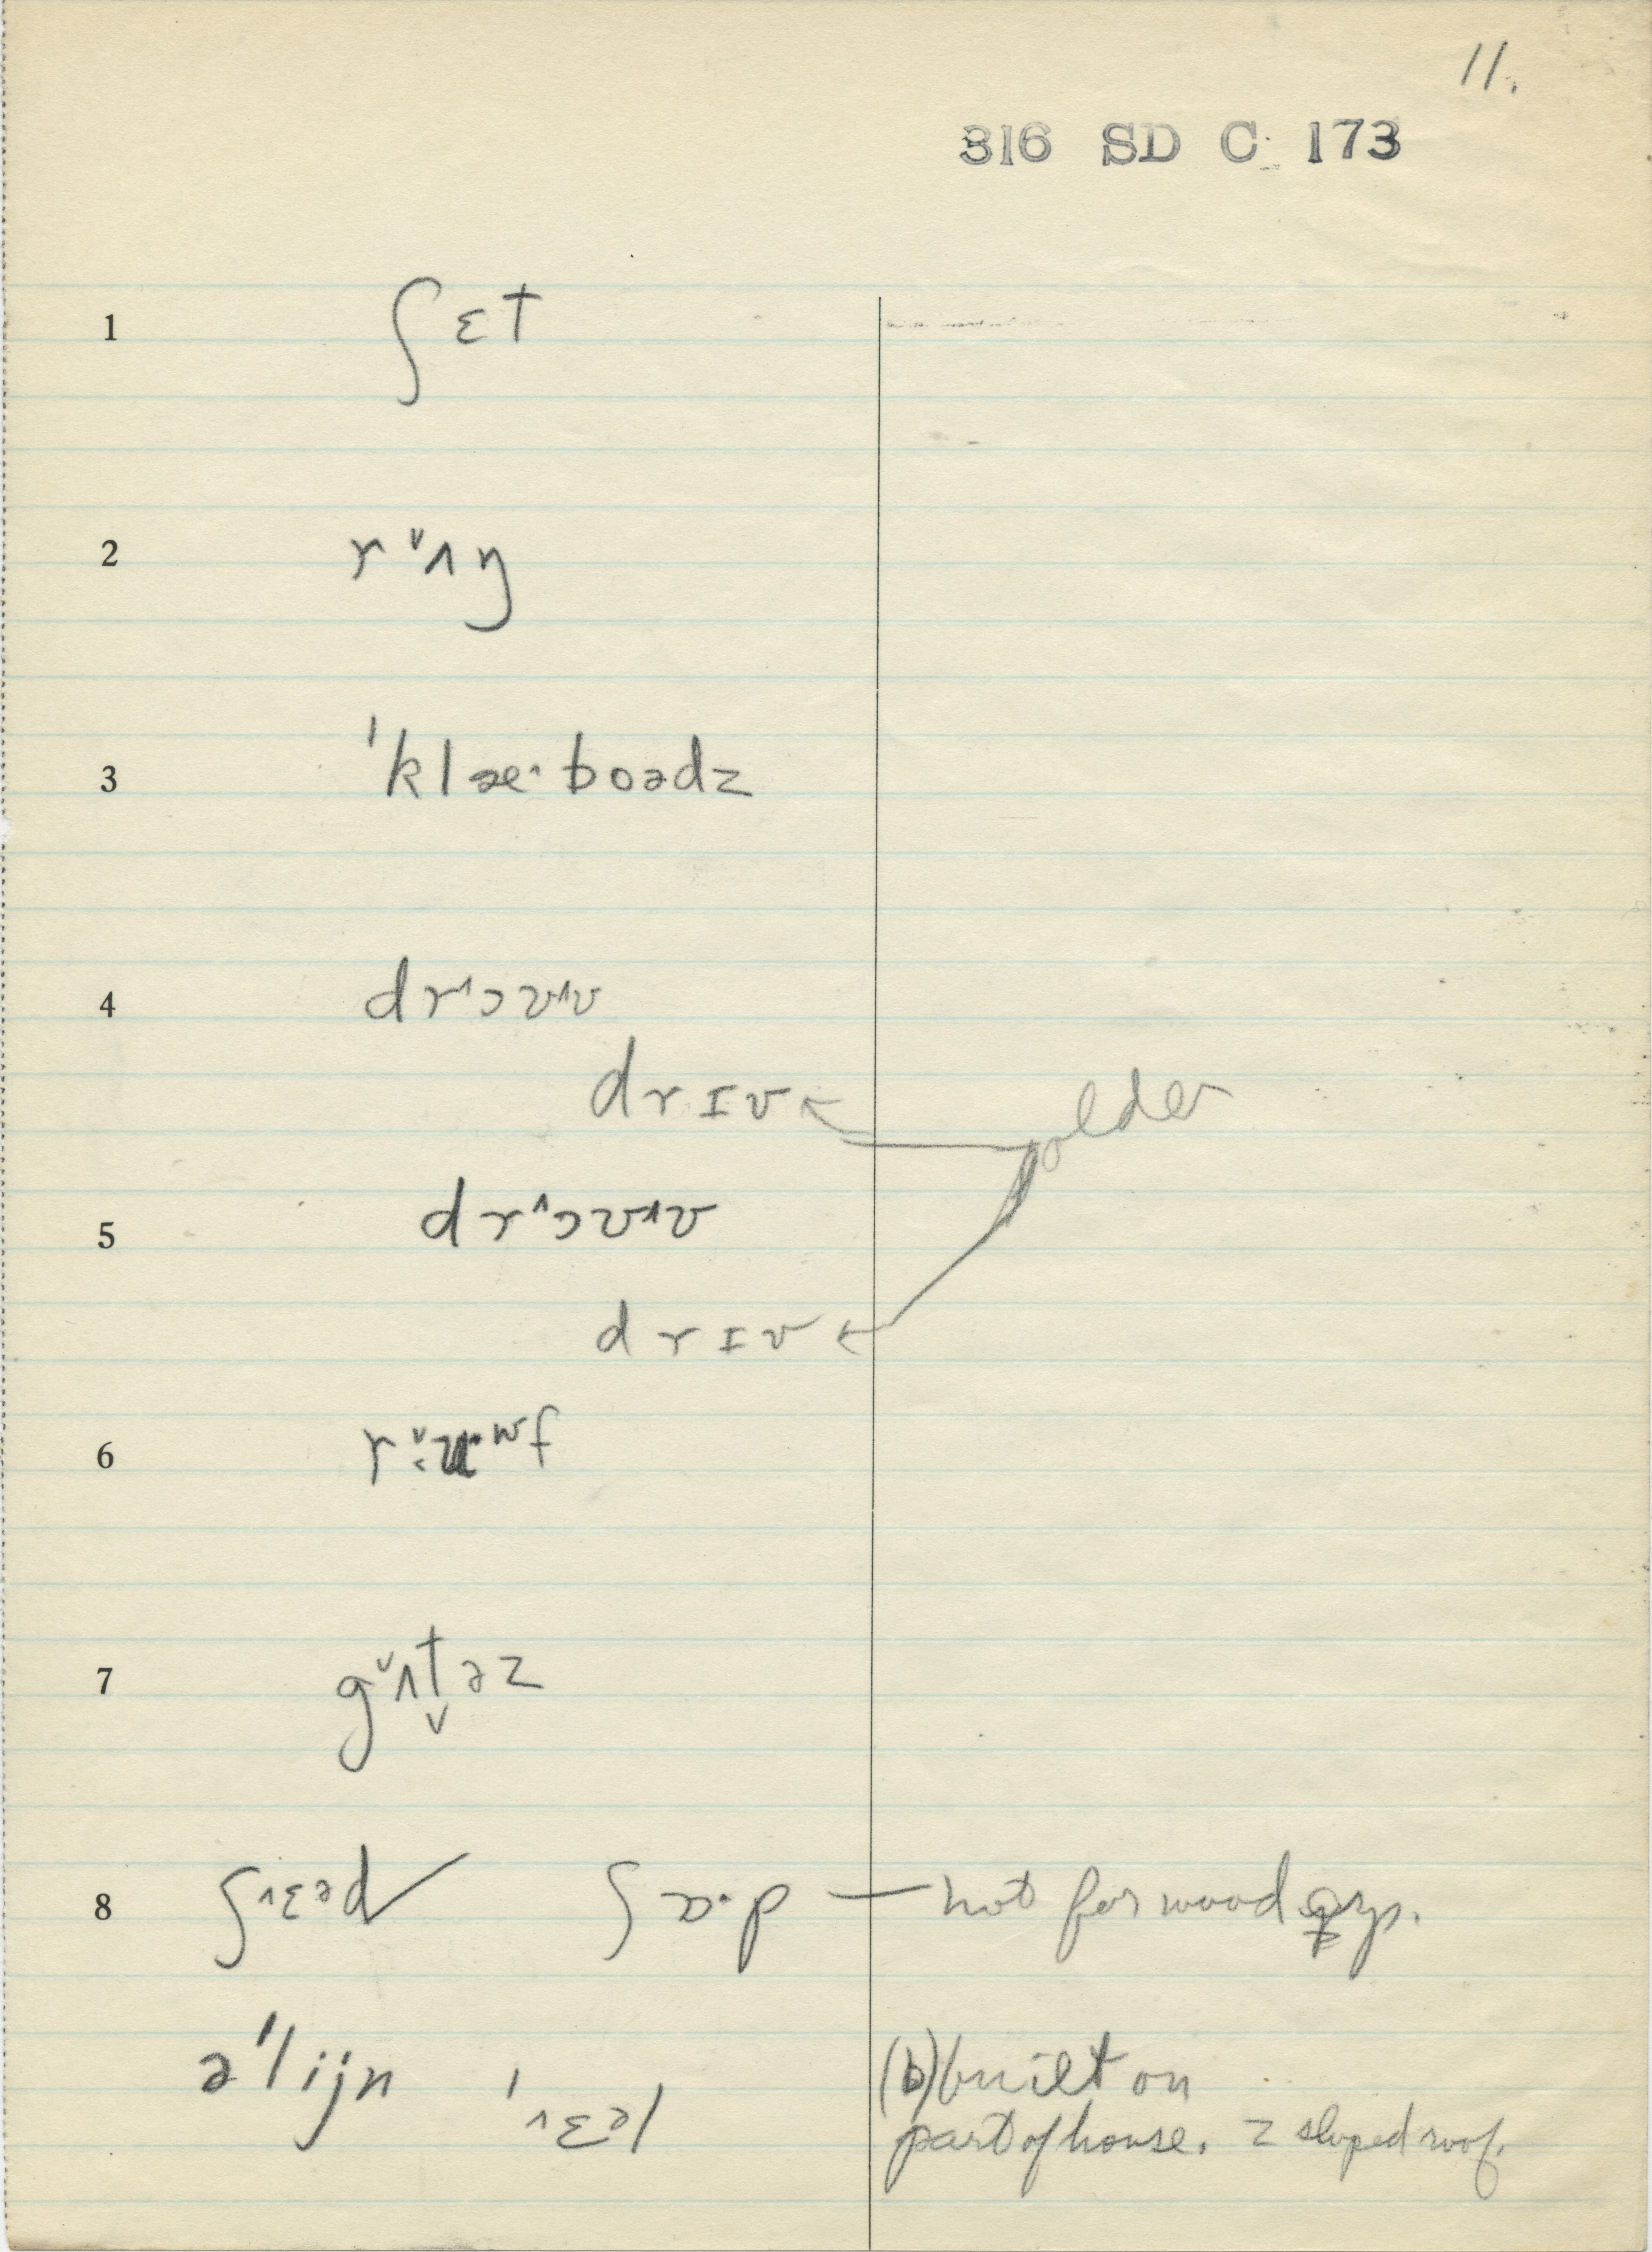 11.
316 SD C 173
1 ʃɛt
2 r˅ʌŋ
3 ˈklæ·boədz
4 dr˄ɔʊ˄v
drɪv ← older
5 dr˄ɔʊ˄v
drɪv ←
6 r ʉ·ʷf
7 g˅ʌt̬əz
8 ʃ˄ɛəd✓ ʃɒ·p — not for wood
əˈlijn ˈ˄ɛəl (b) built on
part of house. sloped roof.